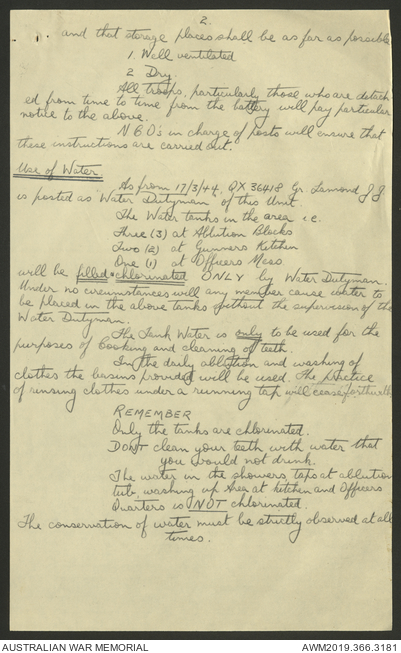 2.
and that storage places shall be as far as possible
1. Well ventilated
2 Dry.
All troops, particularly those who are detach
ed from time to time from the battery will pay particular
notice to the above.
N.C.O's in charge of posts will ensure that
these instructions are carried out.
Use of Water
As from 17/3/44, QX 36418 Gr. Lamond J J
is posted as "Water Dutyman" of this Unit.
The Water tanks in the area i.e.
Three (3) at Ablution Blocks
Two (2) at Gunners Kitchen
One (1) at Officers Mess.
will be filled & chlorinated ONLY by Water Dutyman.
Under no circumstances will any member cause water to
be placed in the above tanks without the supervision of the
Water Dutyman.
The Tank Water is only to be used for the
purposes of Cooking and cleaning of teeth.
In the daily ablution and washing of
clothes the basins provided will be used. The practice
of rinsing clothes under a running tap will cease forthwith
REMEMBER
Only the tanks are chlorinated.
DON'T clean your teeth with water that
you would not drink.
The water in the showers, taps at ablution
tub, washing up Area at kitchen and Officers
Quarters is NOT chlorinated.
The conservation of water must be strictly observed at all
times.
AUSTRALIAN WAR MEMORIAL
AWM2019.366.3181